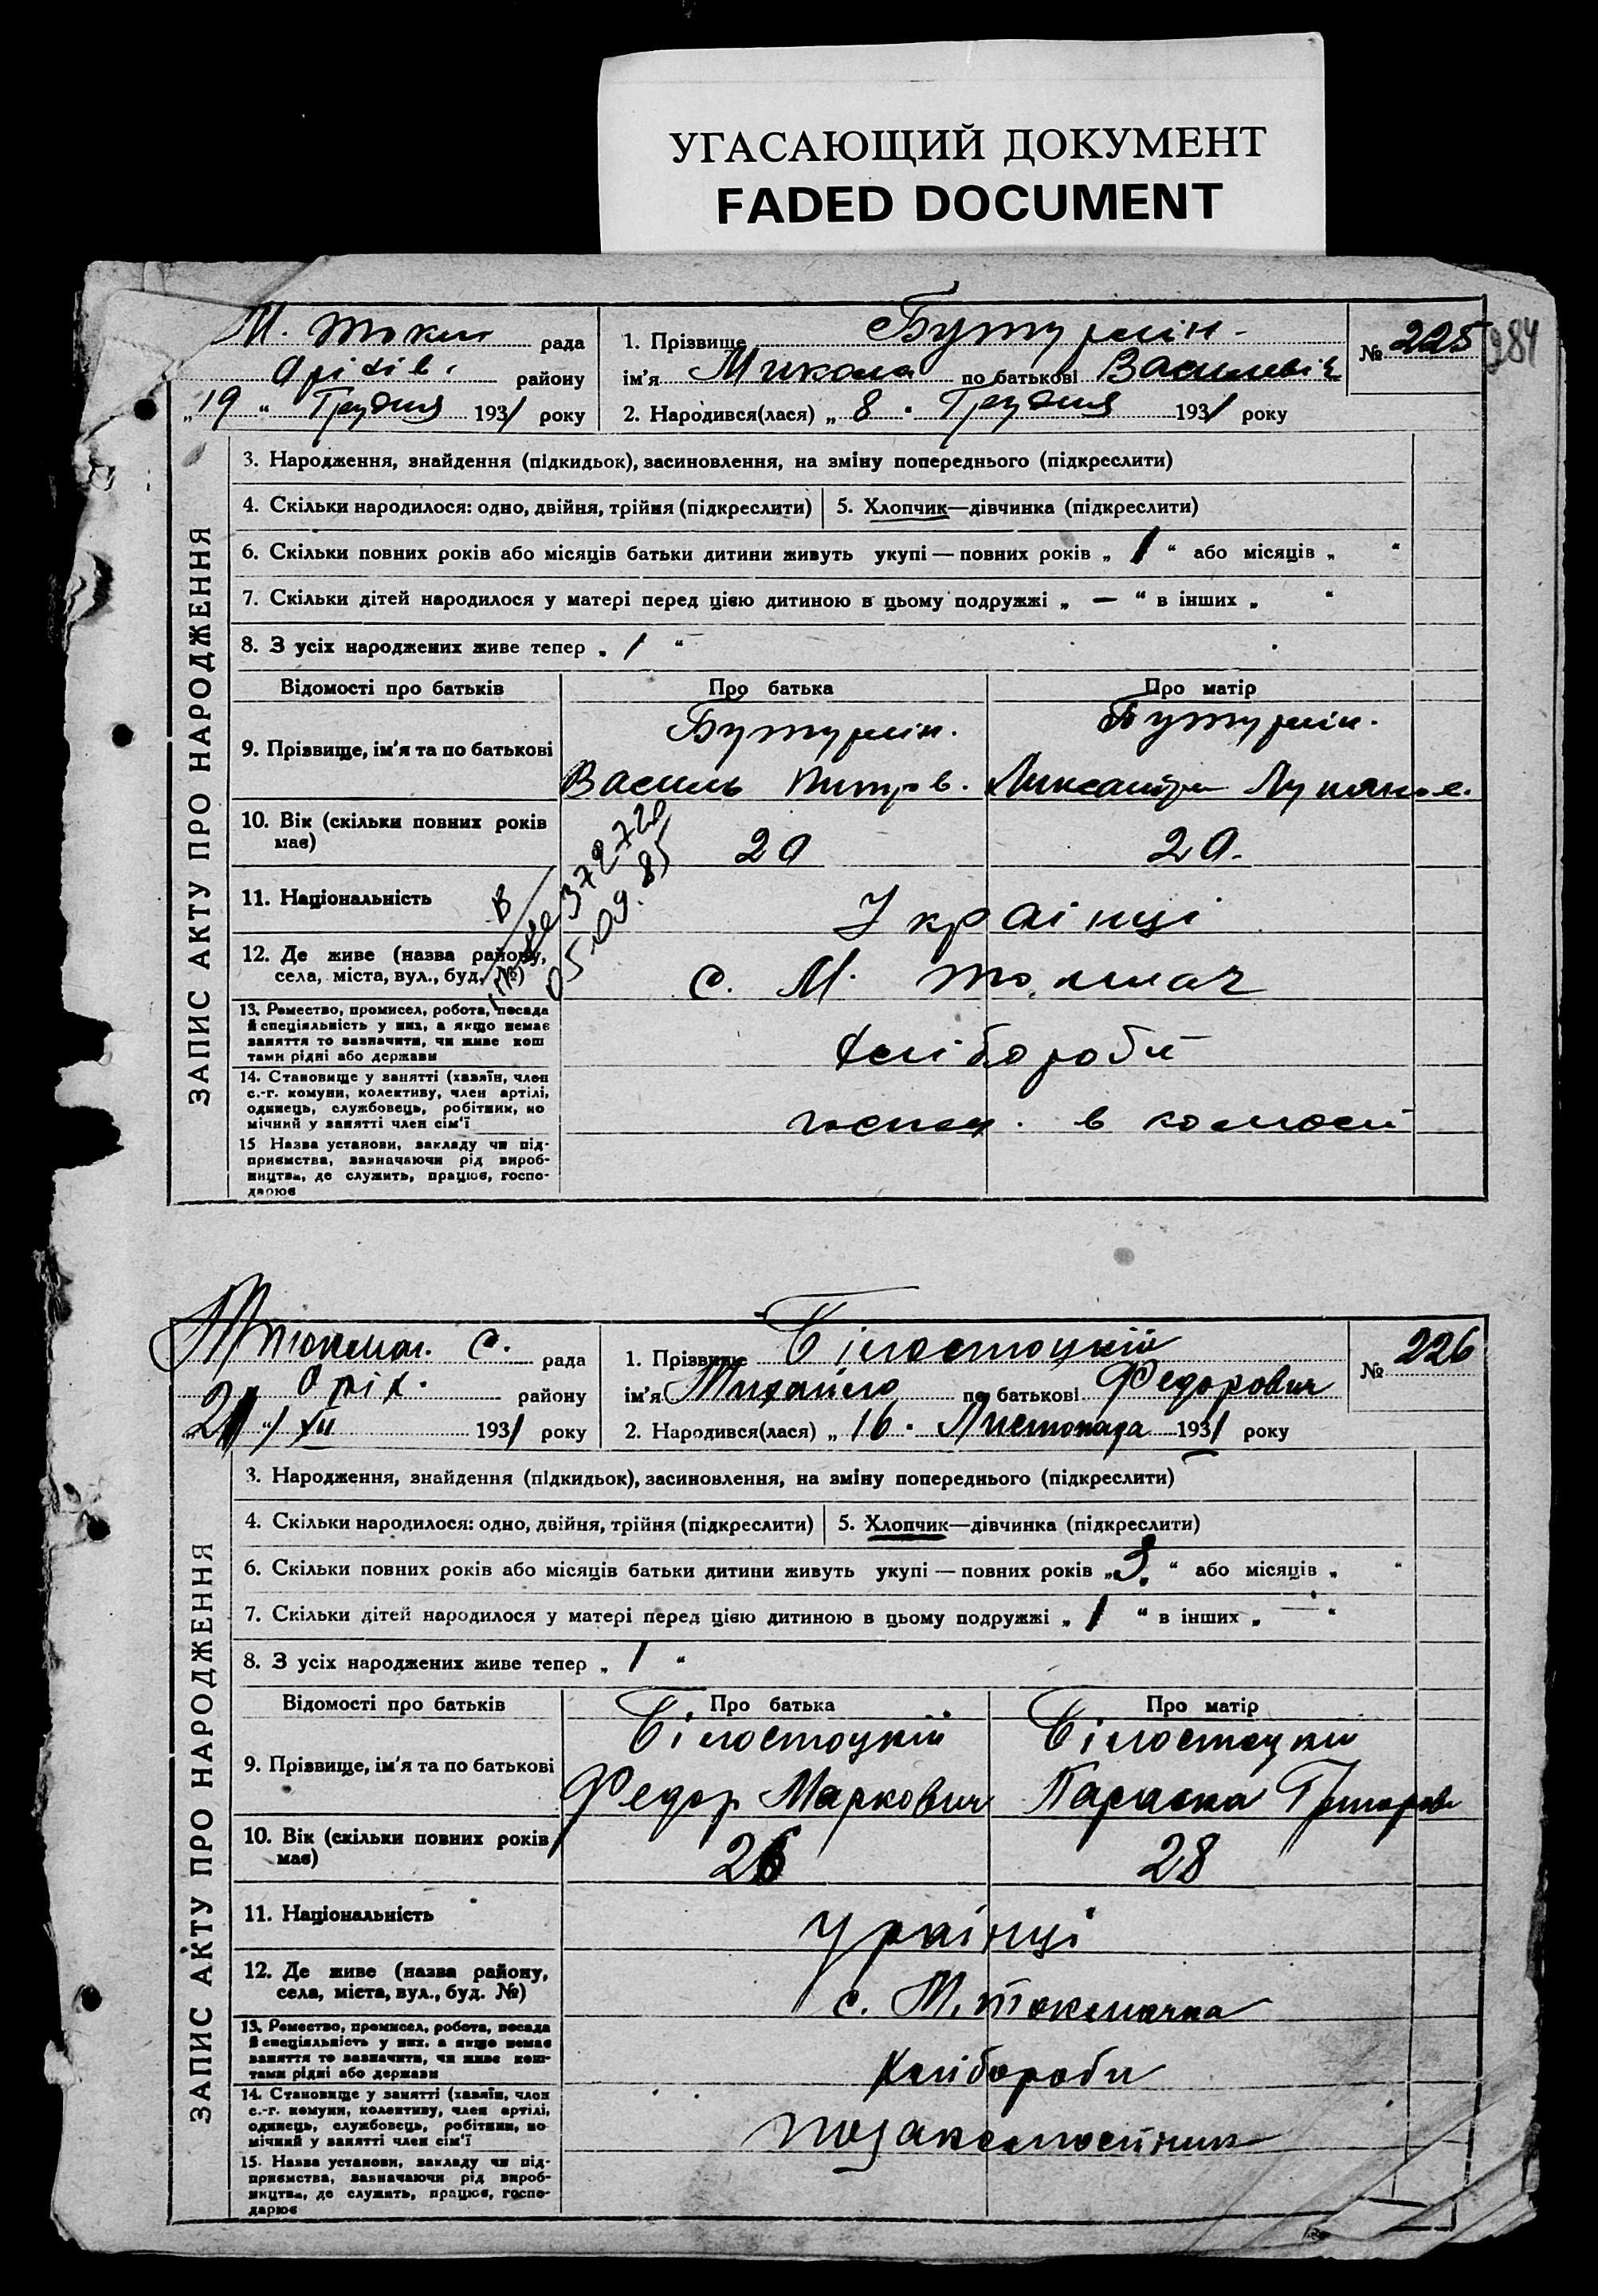 УГАСАЮЩИЙ ДОКУМЕНТ
FADED DOCUMENT
284
М. Токм рада
Оріхів. району
„19 “ Грудня 1931 року
1. Прізвище Бутурлін
ім'я Микола по батькові Василевіч
2. Народився(лася) „ 8 “ Грудня 1931 року
№ 225
ЗАПИС АКТУ ПРО НАРОДЖЕННЯ
3. Народження, знайдення (підкидьок), засиновлення, на зміну попереднього (підкреслити)
4. Скільки народилося: одно, двійня, трійня (підкреслити) 5. Хлопчик—дівчинка (підкреслити)
6. Скільки повних років або місяців батьки дитини живуть укупі — повних років „ 1 “ або місяців „ “
7. Скільки дітей народилося у матері перед цією дитиною в цьому подружжі „ — “ в інших „ “
8. З усіх народжених живе тепер „ 1 “
Відомості про батьків Про батька Про матір
9. Прізвище, ім'я та по батькові
Бутурлін. Бутурлін.
Василь
10. Вік (скільки повних років
має)
20 20.
11. Національність
Украінці
372720
05.09.85
12. Де живе (назва району,
села, міста, вул., буд. №)
с. М. Токмач
13. Ремество, промисел, робота, посада
й спеціяльність у них, а якщо немає
заняття то зазначити, чи живе кош
тами рідні або держави
Хлібороби
14. Становище у занятті (хазяїн, член
с.-г. комуни, колективу, член артілі,
одинець, службовець, робітник, по
мічний у занятті член сім'ї
господ. в колгоспі
15 Назва установи, закладу чи під-
приємства, зазначаючи рід вироб-
ництва, де служить, працює, госпо-
дарює
М Токмач. С. рада
Оріх. району
„21 “ XII 1931 року
1. Прізвище Білостоцкій
ім'я Михайло по батькові Федорович
2. Народився(лася) „ 16 “ Листопада 1931 року
№ 226
ЗАПИС АКТУ ПРО НАРОДЖЕННЯ
3. Народження, знайдення (підкидьок), засиновлення, на зміну попереднього (підкреслити)
4. Скільки народилося: одно, двійня, трійня (підкреслити) 5. Хлопчик—дівчинка (підкреслити)
6. Скільки повних років або місяців батьки дитини живуть укупі — повних років „ 3. “ або місяців „ “
7. Скільки дітей народилося у матері перед цією дитиною в цьому подружжі „ 1 “ в інших „ — “
8. З усіх народжених живе тепер „ 1 “
Відомості про батьків Про батька Про матір
9. Прізвище, ім'я та по батькові
Білостоцкій Білостоцкій
Федор Маркович Параска Григоров
10. Вік (скільки повних років
має)
26 28
11. Національність
Украінці
12. Де живе (назва району,
села, міста, вул., буд. №)
с. М. Токмачка
13. Ремество, промисел, робота, посада
й спеціяльність у них, а якщо немає
заняття то зазначити, чи живе кош-
тами рідні або держави
Хлібороби
14. Становище у занятті (хазяїн, член
с.-г. комуни, колективу, член артілі,
одинець, службовець, робітник, по
мічний у занятті член сім'ї
позаколгоспник
15. Назва установи, закладу чи під-
приємства, зазначаючи рід вироб-
ництва, де служить, працює, госпо-
дарює